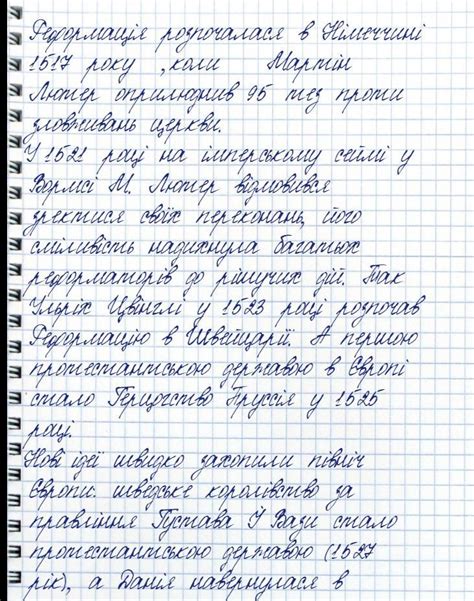 Реформація розпочалася в Німеччині
1517 року , коли Мартін
Лютер оприлюднив 95 тез проти
зловживань церкви.
У 1521 році на імперському сеймі у
Вормсі М. Лютер відмовився
зректися своїх переконань, його
сміливість надихнула багатьох
реформаторів до рішучих дій. Так
Ульріх Цвінглі у 1523 році розпочав
Реформацію в Швейцарії. А першою
протестантською державою в Європі
стало Герцогство Пруссія у 1525
році.
Нові ідеї швидко захопили північ
Європи: шведське королівство за
правління Густава У Вази стало
протестантською державою (1527
рік), а Данія навернулася в